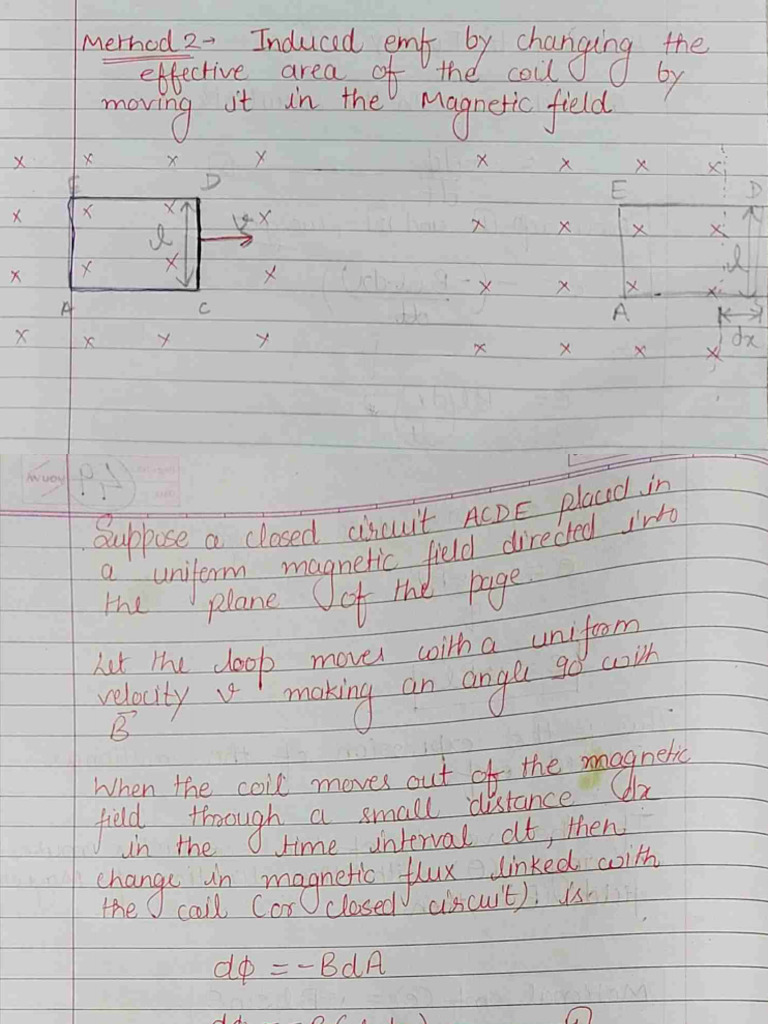 Method 2→ Induced emf by changing the
effective area of the coil by
moving it in the Magnetic field
x x x x x x x x
E D E D
x x x v x x x x x
l l
x x x x x x x x
A C A
dx
x x x x x x x x
Suppose a closed circuit ACDE placed in
a uniform magnetic field directed into
the plane of the page.
Let the loop moves with a uniform
velocity v making an angle 90° with
B⃗
When the coil moves out of the magnetic
field through a small distance dx
in the time interval dt, then
change in magnetic flux linked with
the coil (or closed circuit) is
dϕ = -BdA